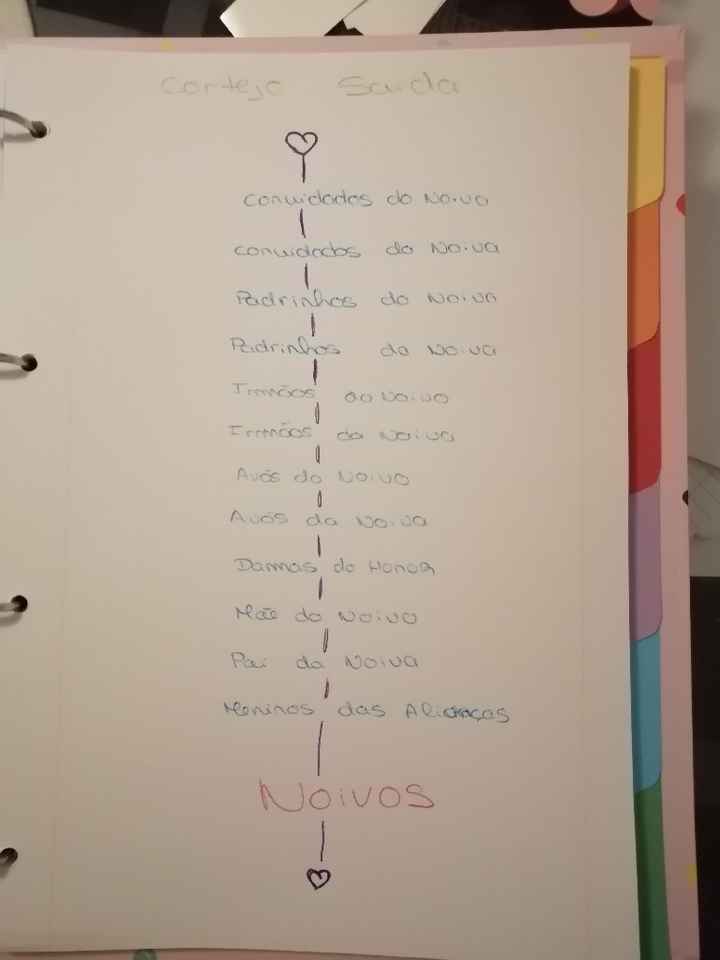 Cortejo Saida
Convidados do Noivo
Convidados da Noiva
Padrinhos do Noivo
Padrinhos da Noiva
Irmãos do Noivo
Irmãos da Noiva
Avós do Noivo
Avós da Noiva
Damas de Honor
Mãe do Noivo
Pai da Noiva
Meninos das Alianças
Noivos